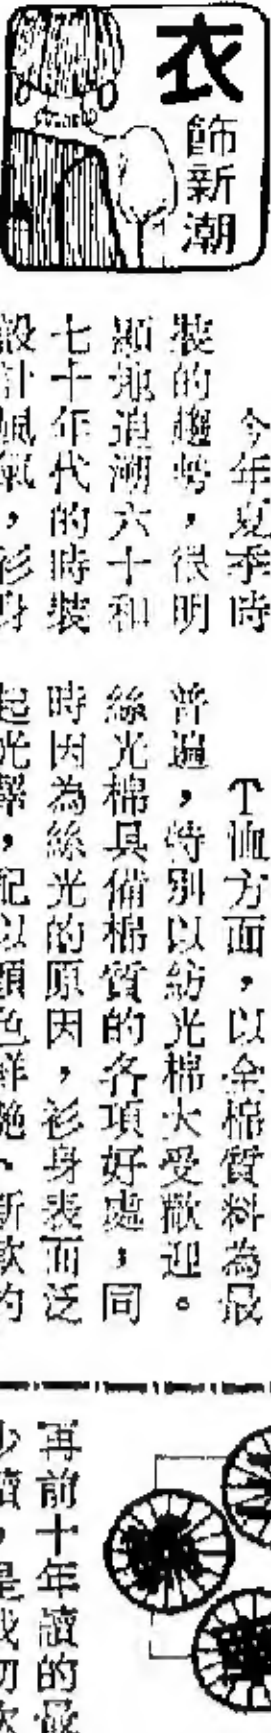 衣
飾新潮
今年夏季時
裝的趨勢，很明
顯地追溯六十和
七十年代的時裝
設計風氣，衫身
T恤方面，以全棉質料為最
普遍，特別以紡光棉大受歡迎。
絲光棉具備棉質的各項好處，同
時因為絲光的原因，衫身表面泛
起光澤，配以顏色鮮艷、新款的
再前十年讀的最
少讀，是我初次